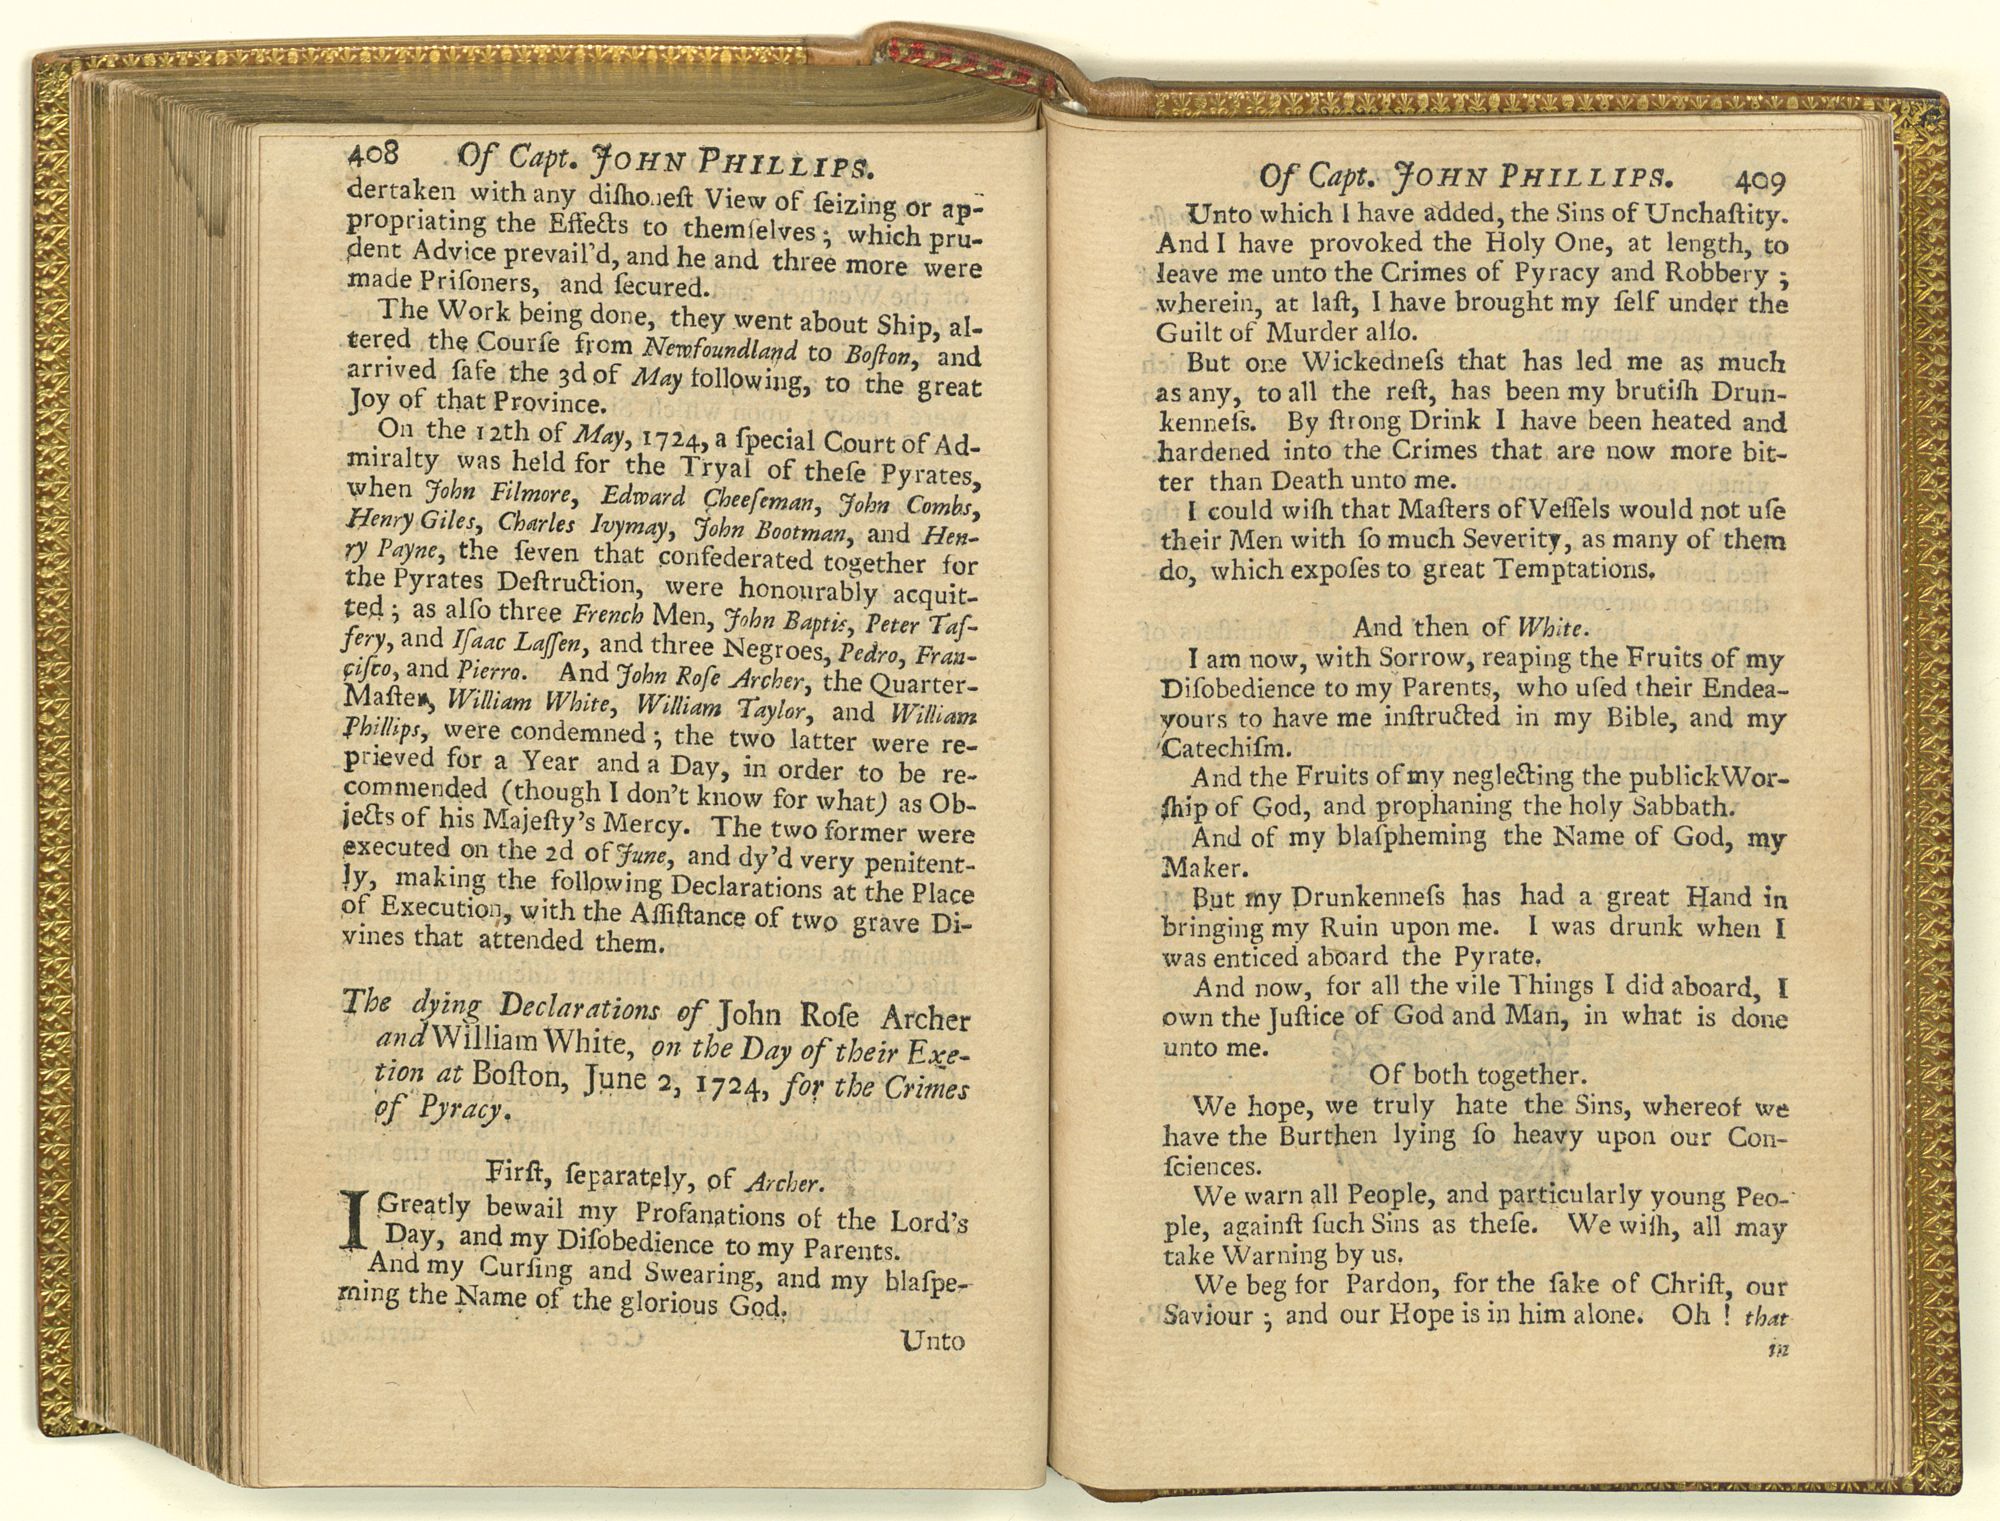 408 Of Capt. JOHN PHILLIPS.
dertaken with any diſhoneſt View of ſeizing or ap-
propriating the Effects to themſelves; which pru-
dent Advice prevail'd, and he and three more were
made Priſoners, and ſecured.
The Work being done, they went about Ship, al-
tered the Courſe from Newfoundland to Boſton, and
arrived ſafe the 3d of May following, to the great
Joy of that Province.
On the 12th of May, 1724, a ſpecial Court of Ad-
miralty was held for the Tryal of theſe Pyrates,
when John Filmore, Edward Cheeſeman, John Combs,
Henry Giles, Charles Ivymay, John Bootman, and Hen-
ry Payne, the ſeven that confederated together for
the Pyrates Deſtruction, were honourably acquit-
ted; as alſo three French Men, John Baptis, Peter Taſ-
fery, and Iſaac Laſſen, and three Negroes, Pedro, Fran-
ciſco, and Pierro. And John Roſe Archer, the Quarter-
Maſter, William White, William Taylor, and William
Phillips, were condemned; the two latter were re-
prieved for a Year and a Day, in order to be re-
commended (though I don't know for what) as Ob-
jects of his Majeſty's Mercy. The two former were
executed on the 2d of June, and dy'd very penitent-
ly, making the following Declarations at the Place
of Execution, with the Aſſiſtance of two grave Di-
vines that attended them.
The dying Declarations of John Roſe Archer
and William White, on the Day of their Exe-
tion at Boſton, June 2, 1724, for the Crimes
of Pyracy.
Firſt, ſeparately, of Archer.
I Greatly bewail my Profanations of the Lord's
Day, and my Diſobedience to my Parents.
And my Curſing and Swearing, and my blaſpe-
ming the Name of the glorious God.
Unto
Of Capt. JOHN PHILLIPS. 409
Unto which I have added, the Sins of Unchaſtity.
And I have provoked the Holy One, at length, to
leave me unto the Crimes of Pyracy and Robbery;
wherein, at laſt, I have brought my ſelf under the
Guilt of Murder alſo.
But one Wickedneſs that has led me as much
as any, to all the reſt, has been my brutiſh Drun-
kenneſs. By ſtrong Drink I have been heated and
hardened into the Crimes that are now more bit-
ter than Death unto me.
I could wiſh that Maſters of Veſſels would not uſe
their Men with ſo much Severity, as many of them
do, which expoſes to great Temptations.
And then of White.
I am now, with Sorrow, reaping the Fruits of my
Diſobedience to my Parents, who uſed their Endea-
vours to have me inſtructed in my Bible, and my
Catechiſm.
And the Fruits of my neglecting the publick Wor-
ſhip of God, and prophaning the holy Sabbath.
And of my blaſpheming the Name of God, my
Maker.
But my Drunkenneſs has had a great Hand in
bringing my Ruin upon me. I was drunk when I
was enticed aboard the Pyrate.
And now, for all the vile Things I did aboard, I
own the Juſtice of God and Man, in what is done
unto me.
Of both together.
We hope, we truly hate the Sins, whereof we
have the Burthen lying ſo heavy upon our Con-
ſciences.
We warn all People, and particularly young Peo-
ple, againſt ſuch Sins as theſe. We wiſh, all may
take Warning by us.
We beg for Pardon, for the ſake of Chriſt, our
Saviour; and our Hope is in him alone. Oh! that
in